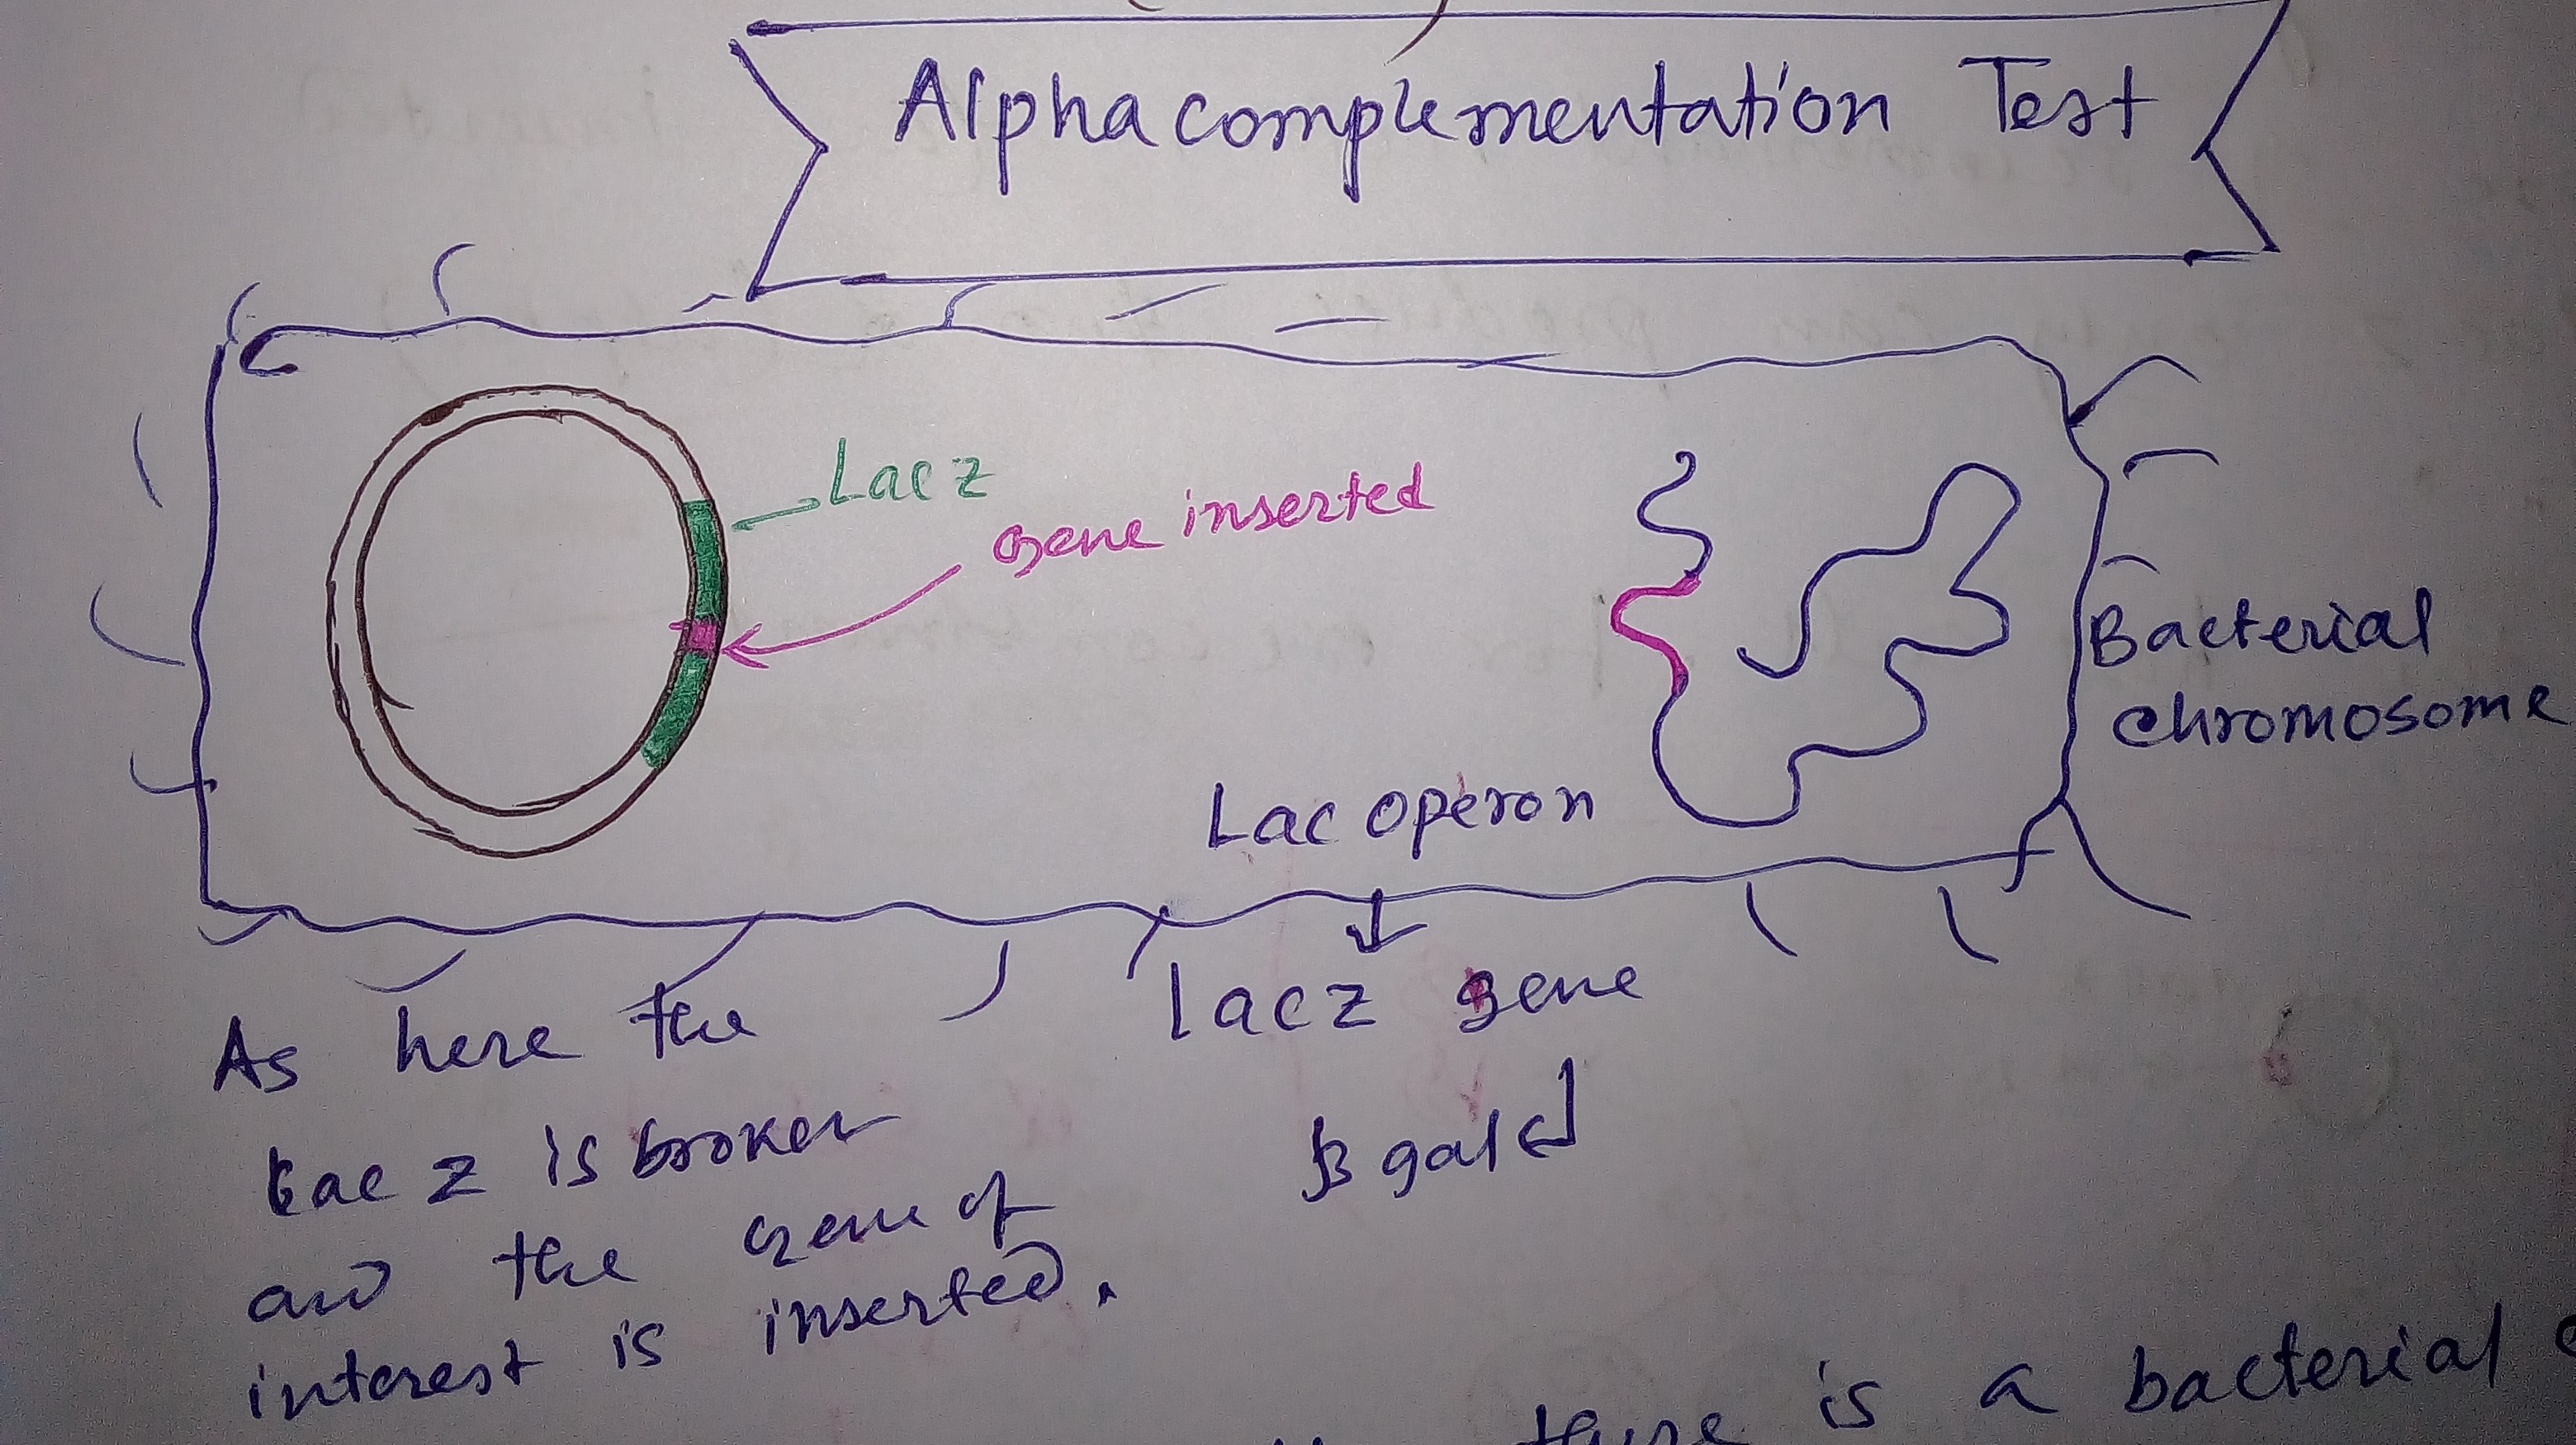 Alpha complementation Test
Lac z
Gene inserted
Bacterial
chromosome
Lac operon
lac z gene
β gal
As here the
Lac z is broken
and the Gene of
interest is inserted.
there is a bacterial